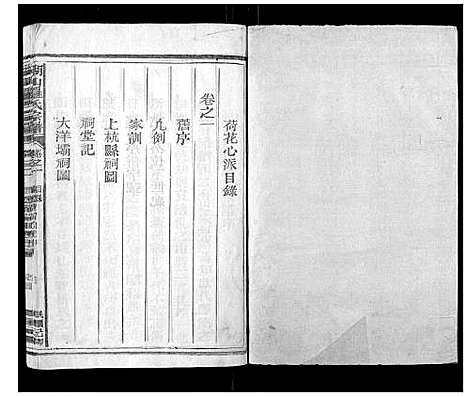 荷花心派目錄
卷之一
舊序
凡例
家訓
上杭縣祠圖
祠堂記
大洋壩祠圖